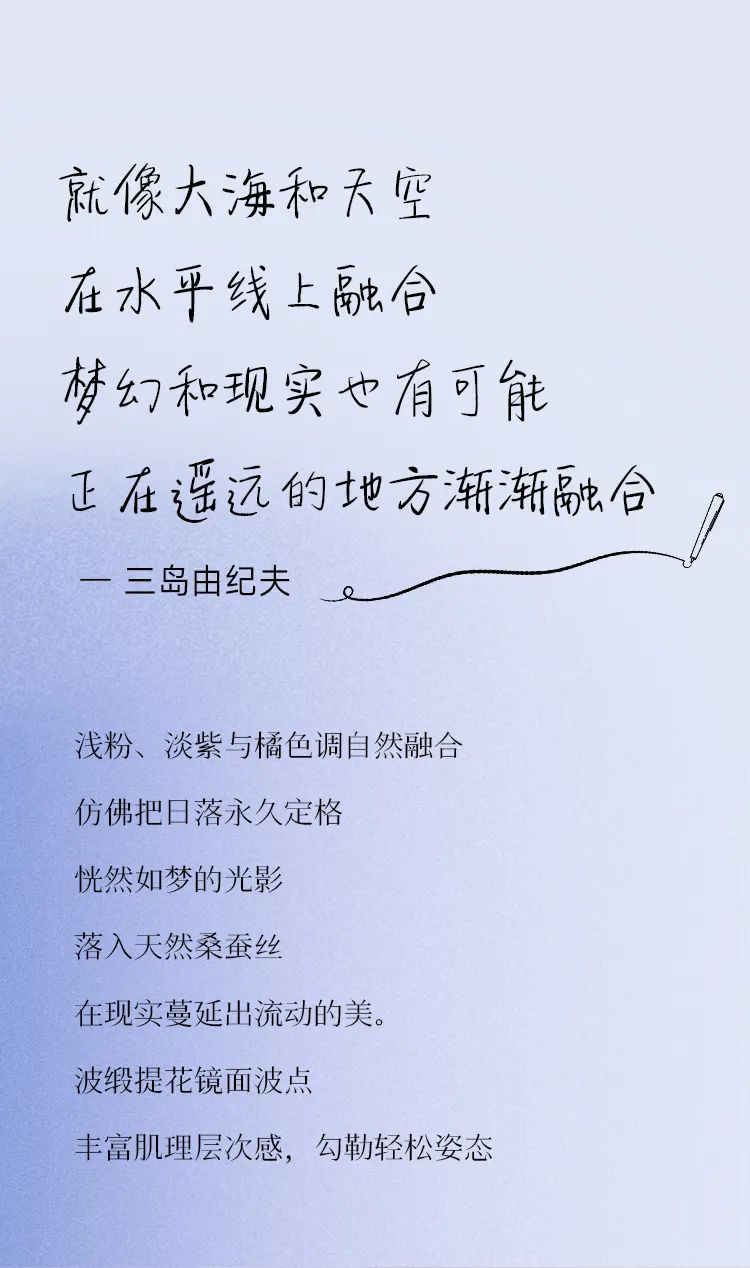 就像大海和天空
在水平线上融合
梦幻和现实也有可能
正在遥远的地方渐渐融合
— 三岛由纪夫
浅粉、淡紫与橘色调自然融合
仿佛把日落永久定格
恍然如梦的光影
落入天然桑蚕丝
在现实蔓延出流动的美。
波缎提花镜面波点
丰富肌理层次感，勾勒轻松姿态